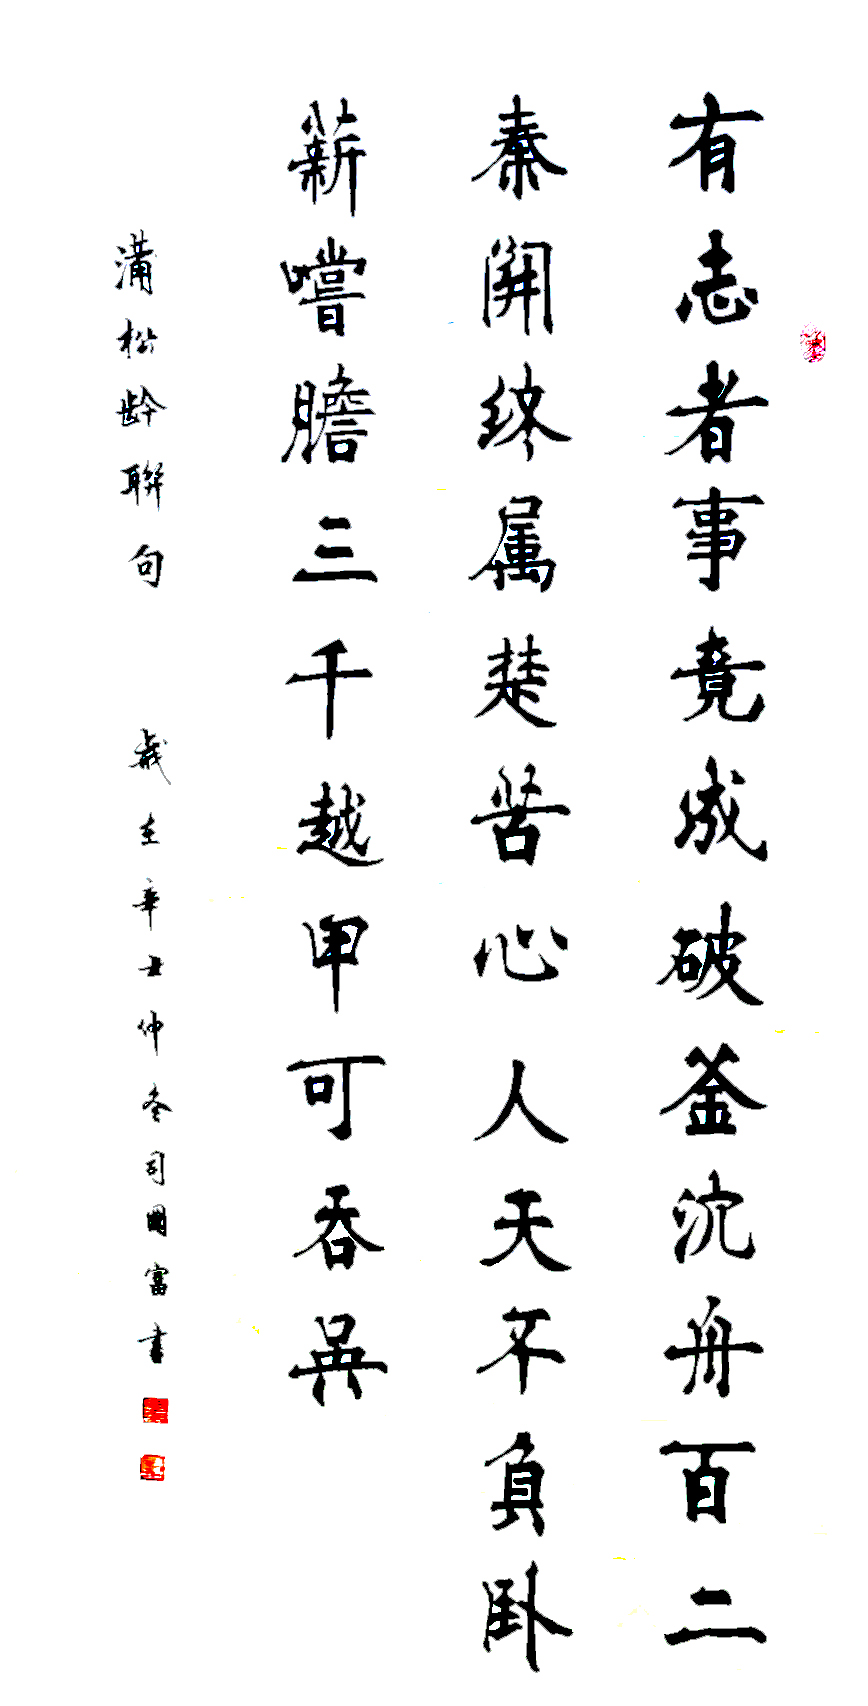 有志者事竟成破釜沈舟百二
秦關终属楚苦心人天不負卧
薪嚐膽三千越甲可吞吳
蒲松龄聯句 歲在辛丑仲冬司國富書